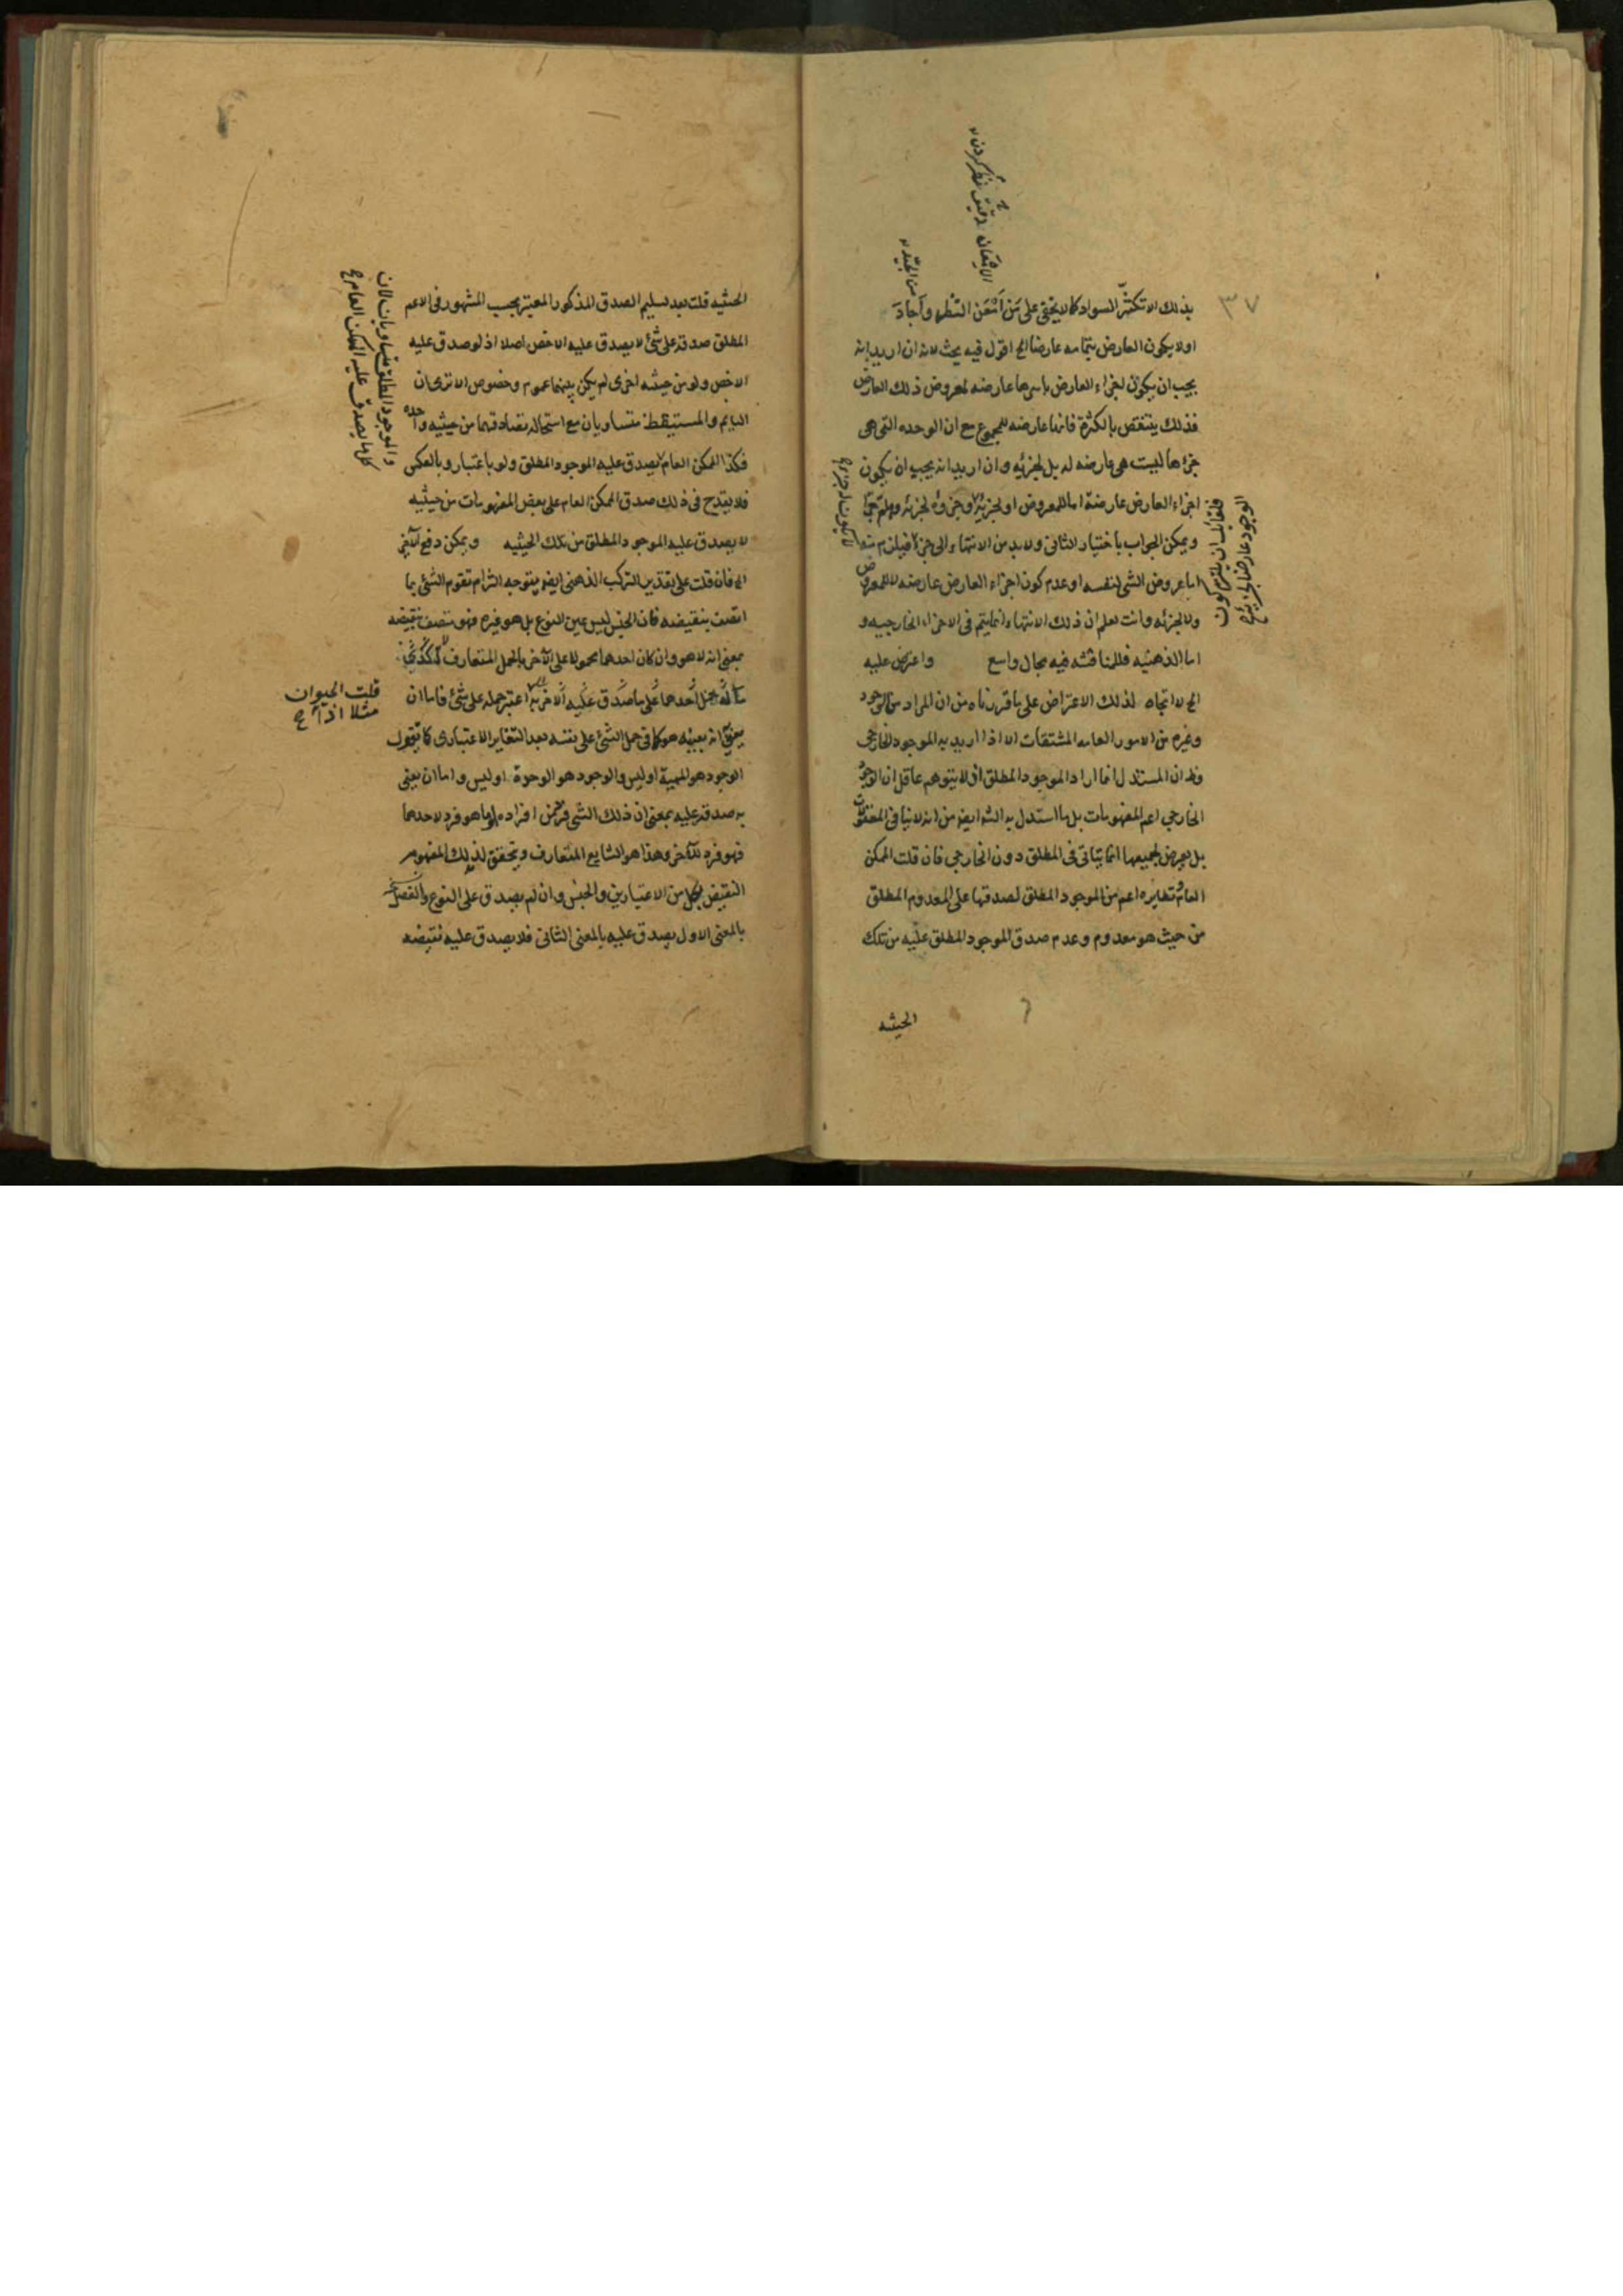 ٣٧
بذلك الا تكثر السواد كما لا يخفى على من أتقن النظر وأجاد
او لا يكون العارض بتمامه عارضا الخ اقول فيه بحث لانه ان اريد انه
يجب ان يكون اجزاء العارض باسرها عارضه لمعروض ذلك العارض
فذلك ينتقص بالكثرة فانها عارضه للمجموع مع ان الوحده التى هى
جزءها ليست هى عارضه له بل لجزئيه وان اريد انه يجب ان يكون
اجزاء العارض عارضة اما للمعروض او لجزئه وجزؤه لجزئه
ويمكن الجواب باختيار الثانى ولا بد من الانتهاء الى جزء فيلزم منه
اما عروض الشى لنفسه او عدم كون اجزاء العارض عارضه لا للمعروض
ولا لجزئه وانت تعلم ان ذلك الانتهاء انما يتم فى الاجزاء الخارجيه و
اما الذهنيه فللمناقشه فيه مجال واسع واعترض عليه
الخ لا اتجاه لذلك الاعتراض على ما قررناه من ان المراد من الوجود
وغيره من الامور العامه المشتقات الا اذا اريد به الموجود الخارجى
وظ ان المستدل انما اراد الموجود المطلق اذ لا يتوهم عاقل ان الوجود
الخارجي اعم المفهومات بل ما استدل به الشه ايضا من انه لا ينافى المعقولات
بل يعرض لجميعها انما يتأتى فى المطلق دون الخارجي فان قلت الممكن
العام ونظايره اعم من الموجود المطلق لصدقها على المعدوم المطلق
من حيث هو معدوم وعدم صدق الموجود المطلق عليه من تلك
الحيثيه
الامعان دقيق نظر كردن
من الجيد
الوجود عارضا لجزئه
الحيثيه قلت بعد تسليم الصدق المذكور المعتبر بحسب المشهور فى الاعم
المطلق صدقه على شئ لا يصدق عليه الاخص اصلا اذ لو صدق عليه
الاخص ولو من حيثيه اخرى لم يكن بينهما عموم وخصوص الا ترى ان
النايم والمستيقظ متساويان مع استحاله تصادقهما من حيثيه واحده
فكذا الممكن العام يصدق عليه الموجود المطلق ولو باعتبار وبالعكس
فلا يقدح فى ذلك صدق الممكن العام على بعض المفهومات من حيثيه
لا يصدق عليه الموجود المطلق من تلك الحيثيه ويمكن دفع الاخير
الخ فان قلت على تقدير التركب الذهنى ايضا يتوجه الزام تقوم الشئ بما
اتصف بنقيضه فان الجنس ليس عين النوع بل هو غيره فهو متصف بنقيضه
بمعنى انه لا هو وان كان احدهما محمولا على الآخر بالحمل المتعارف
حمل احدهما على ما صدق عليه الآخر اعتبر حمله على شئ فاما ان
يعنى انه بعينه هو كما فى حمل الشئ على نفسه بعد التغاير الاعتبارى كما تقول
الوجود هو المهية او ليس والوجود هو الوحدة او ليس واما ان يعنى
به صدقه عليه بمعنى ان ذلك الشى فرد من افراده او ما هو فرد لاحدهما
فهو فرد للآخر وهذا هو الشايع المتعارف ويتحقق لذلك المفهوم
النقيض بكل من الاعتبارين والجنس وان لم يصدق على النوع والفصل
بالمعنى الاول يصدق عليه بالمعنى الثانى فلا يصدق عليه نقيضه
والموجود المطلق متساويان لان
كل ما يصدق عليه الممكن العام
قلت الحيوان
مثلا اذا